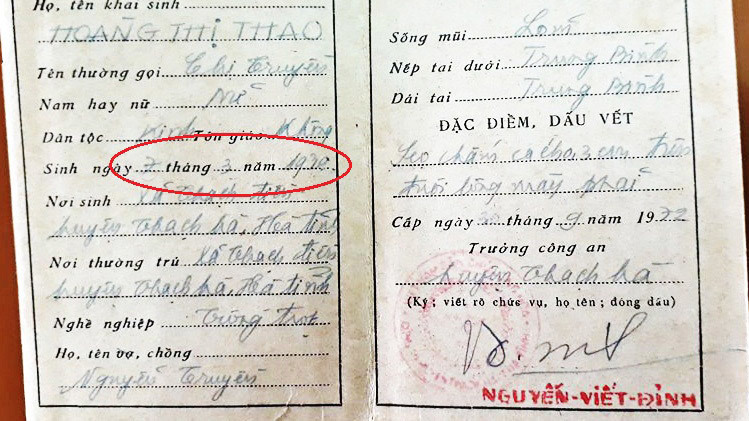 Họ, tên khai sinh
HOÀNG THỊ THAO
Tên thường gọi Chị Truyền
Nam hay nữ Nữ
Dân tộc Kinh Tôn giáo Không
Sinh ngày 7 tháng 3 năm 19
Nơi sinh Xã Thạch Điền
huyện Thạch Hà, Hà Tĩnh
Nơi thường trú Xã Thạch Điền
huyện Thạch Hà, Hà Tĩnh
Nghề nghiệp Trồng trọt
Họ, tên vợ, chồng
Nguyễn Truyền
Sống mũi Lõm
Nếp tai dưới Trung Bình
Dái tai Trung Bình
ĐẶC ĐIỂM, DẤU VẾT
Sẹo chấm cách 3 cm trên
đuôi lông mày phải
Cấp ngày tháng 9 năm 1972
Trưởng công an
huyện Thạch Hà
(Ký; viết rõ chức vụ, họ tên; đóng dấu)
NGUYỄN-VIẾT-ĐỈNH